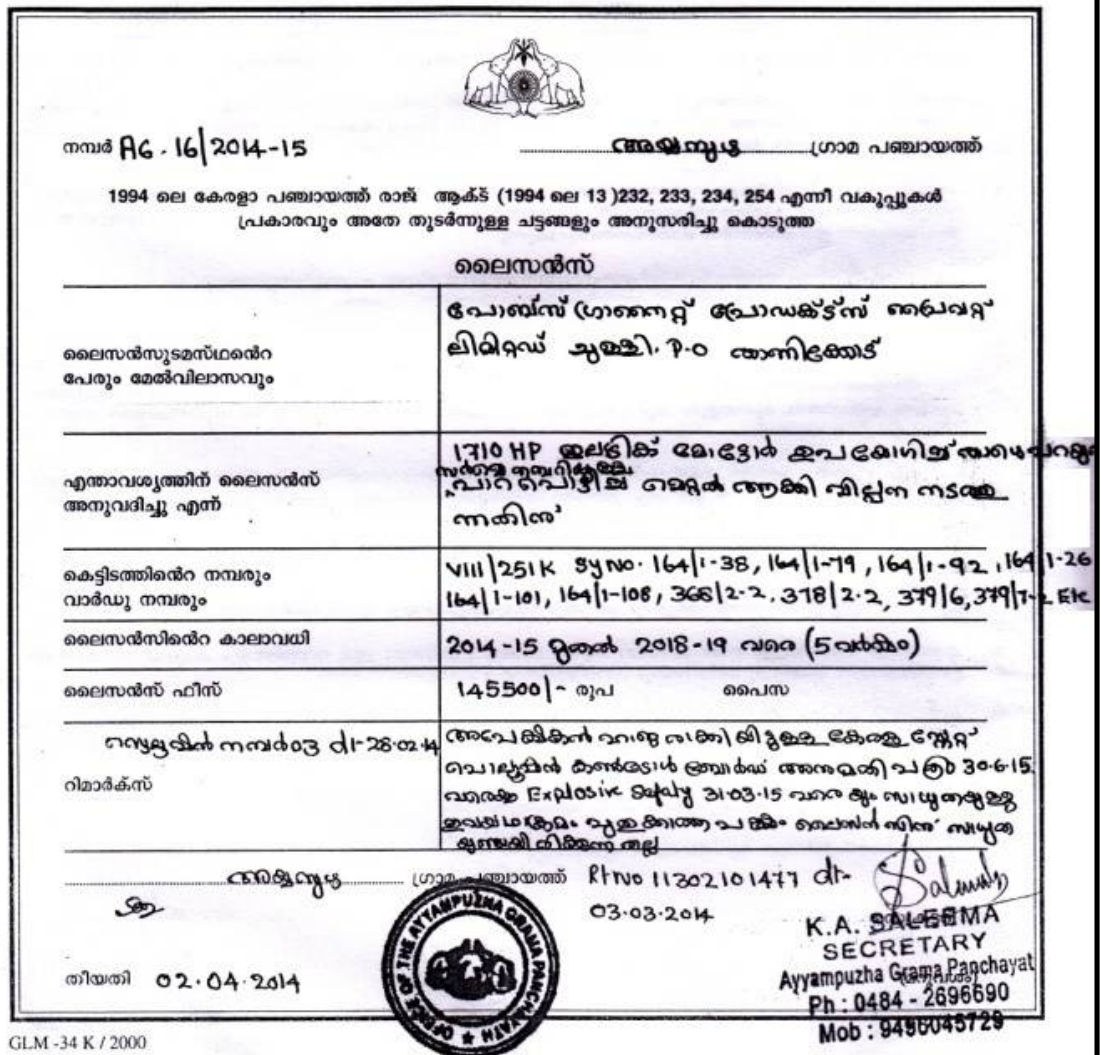 നമ്പർ A6.16/2014-15 അയ്യമ്പുഴ ഗ്രാമ പഞ്ചായത്ത്
1994 ലെ കേരളാ പഞ്ചായത്ത് രാജ് ആക്ട് (1994 ലെ 13 )232, 233, 234, 254 എന്നീ വകുപ്പുകൾ
പ്രകാരവും അതേ തുടർന്നുള്ള ചട്ടങ്ങളും അനുസരിച്ചു കൊടുത്ത
ലൈസൻസ്
ലൈസൻസുടമസ്ഥന്റെ
പേരും മേൽവിലാസവും
പോബ്സ് ഗ്രാനൈറ്റ് പ്രോഡക്ട്സ് പ്രൈവറ്റ്
ലിമിറ്റഡ് ചുള്ളി. P.O താണിക്കോട്
എന്താവശ്യത്തിന് ലൈസൻസ്
അനുവദിച്ചു എന്ന്
1710 HP ഇലട്രിക് മോട്ടോർ ഉപയോഗിച്ച് താഴെപറയുന്ന
സർവ്വെ നമ്പറിലുള്ള
പാറ പൊട്ടിച്ച് മെറ്റൽ ആക്കി വില്പന നടത്തു
ന്നതിന്
കെട്ടിടത്തിന്റെ നമ്പരും
വാർഡു നമ്പരും
VIII/251K SyNo. 164/1-38, 164/1-79, 164/1-92, 164/1-26
164/1-101, 164/1-108, 368/2-2, 378/2-2, 379/6, 379/7-2 Etc
ലൈസൻസിന്റെ കാലാവധി
2014-15 മുതൽ 2018-19 വരെ (5 വർഷം)
ലൈസൻസ് ഫീസ്
145500/- രൂപ പൈസ
നമ്പർ 03 dt-28.02.14
റിമാർക്സ്
അപേക്ഷകൻ ഹാജരാക്കിയിട്ടുള്ള കേരള സ്റ്റേറ്റ്
പൊല്യൂഷൻ കൺട്രോൾ ബോർഡ് അനുമതി പത്രം 30-6-15
വരെയും Explosive Safety 31-03-15 വരെയും സാധുതയുള്ളു
ഇവ യഥാക്രമം പുതുക്കാത്ത പക്ഷം ലൈസൻസിന് സാധുത
ഉണ്ടായിരിക്കുന്നതല്ല
അയ്യമ്പുഴ ഗ്രാമ പഞ്ചായത്ത് Rt No 11302101477 dt-
03.03.2014
തീയതി 02.04.2014
OFFICE OF THE AYYAMPUZHA GRAMA PANCHAYATH
K.A. SALEEMA
SECRETARY
Ayyampuzha Grama Panchayat
Ph : 0484 - 2696690
Mob : 9496045729
GLM -34 K / 2000